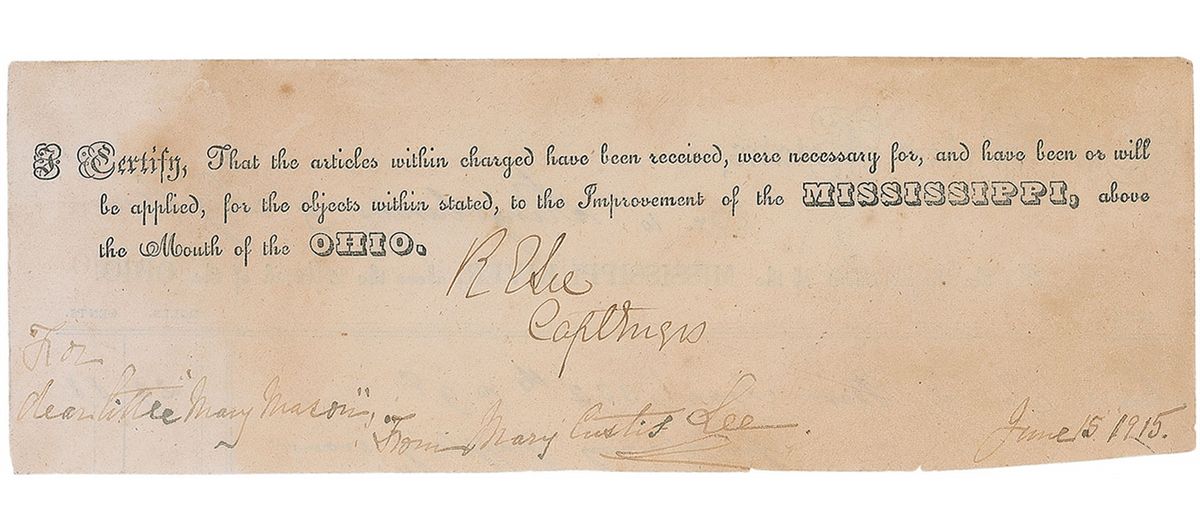 I Certify, That the articles within charged have been received, were necessary for, and have been or will
be applied, for the objects within stated, to the Improvement of the MISSISSIPPI, above
the Mouth of the OHIO.
R E Lee
Capt Engrs
For
dear little "Mary Mason",
From Mary Custis Lee.
June 15. 1915.